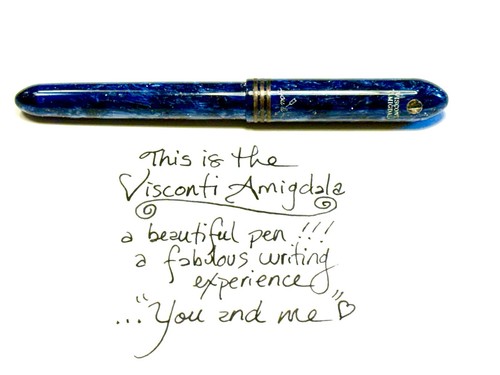 VISCONTI
This is the
Visconti Amigdala
a beautiful pen !!!
a fabulous writing
experience
..."You and me"♡